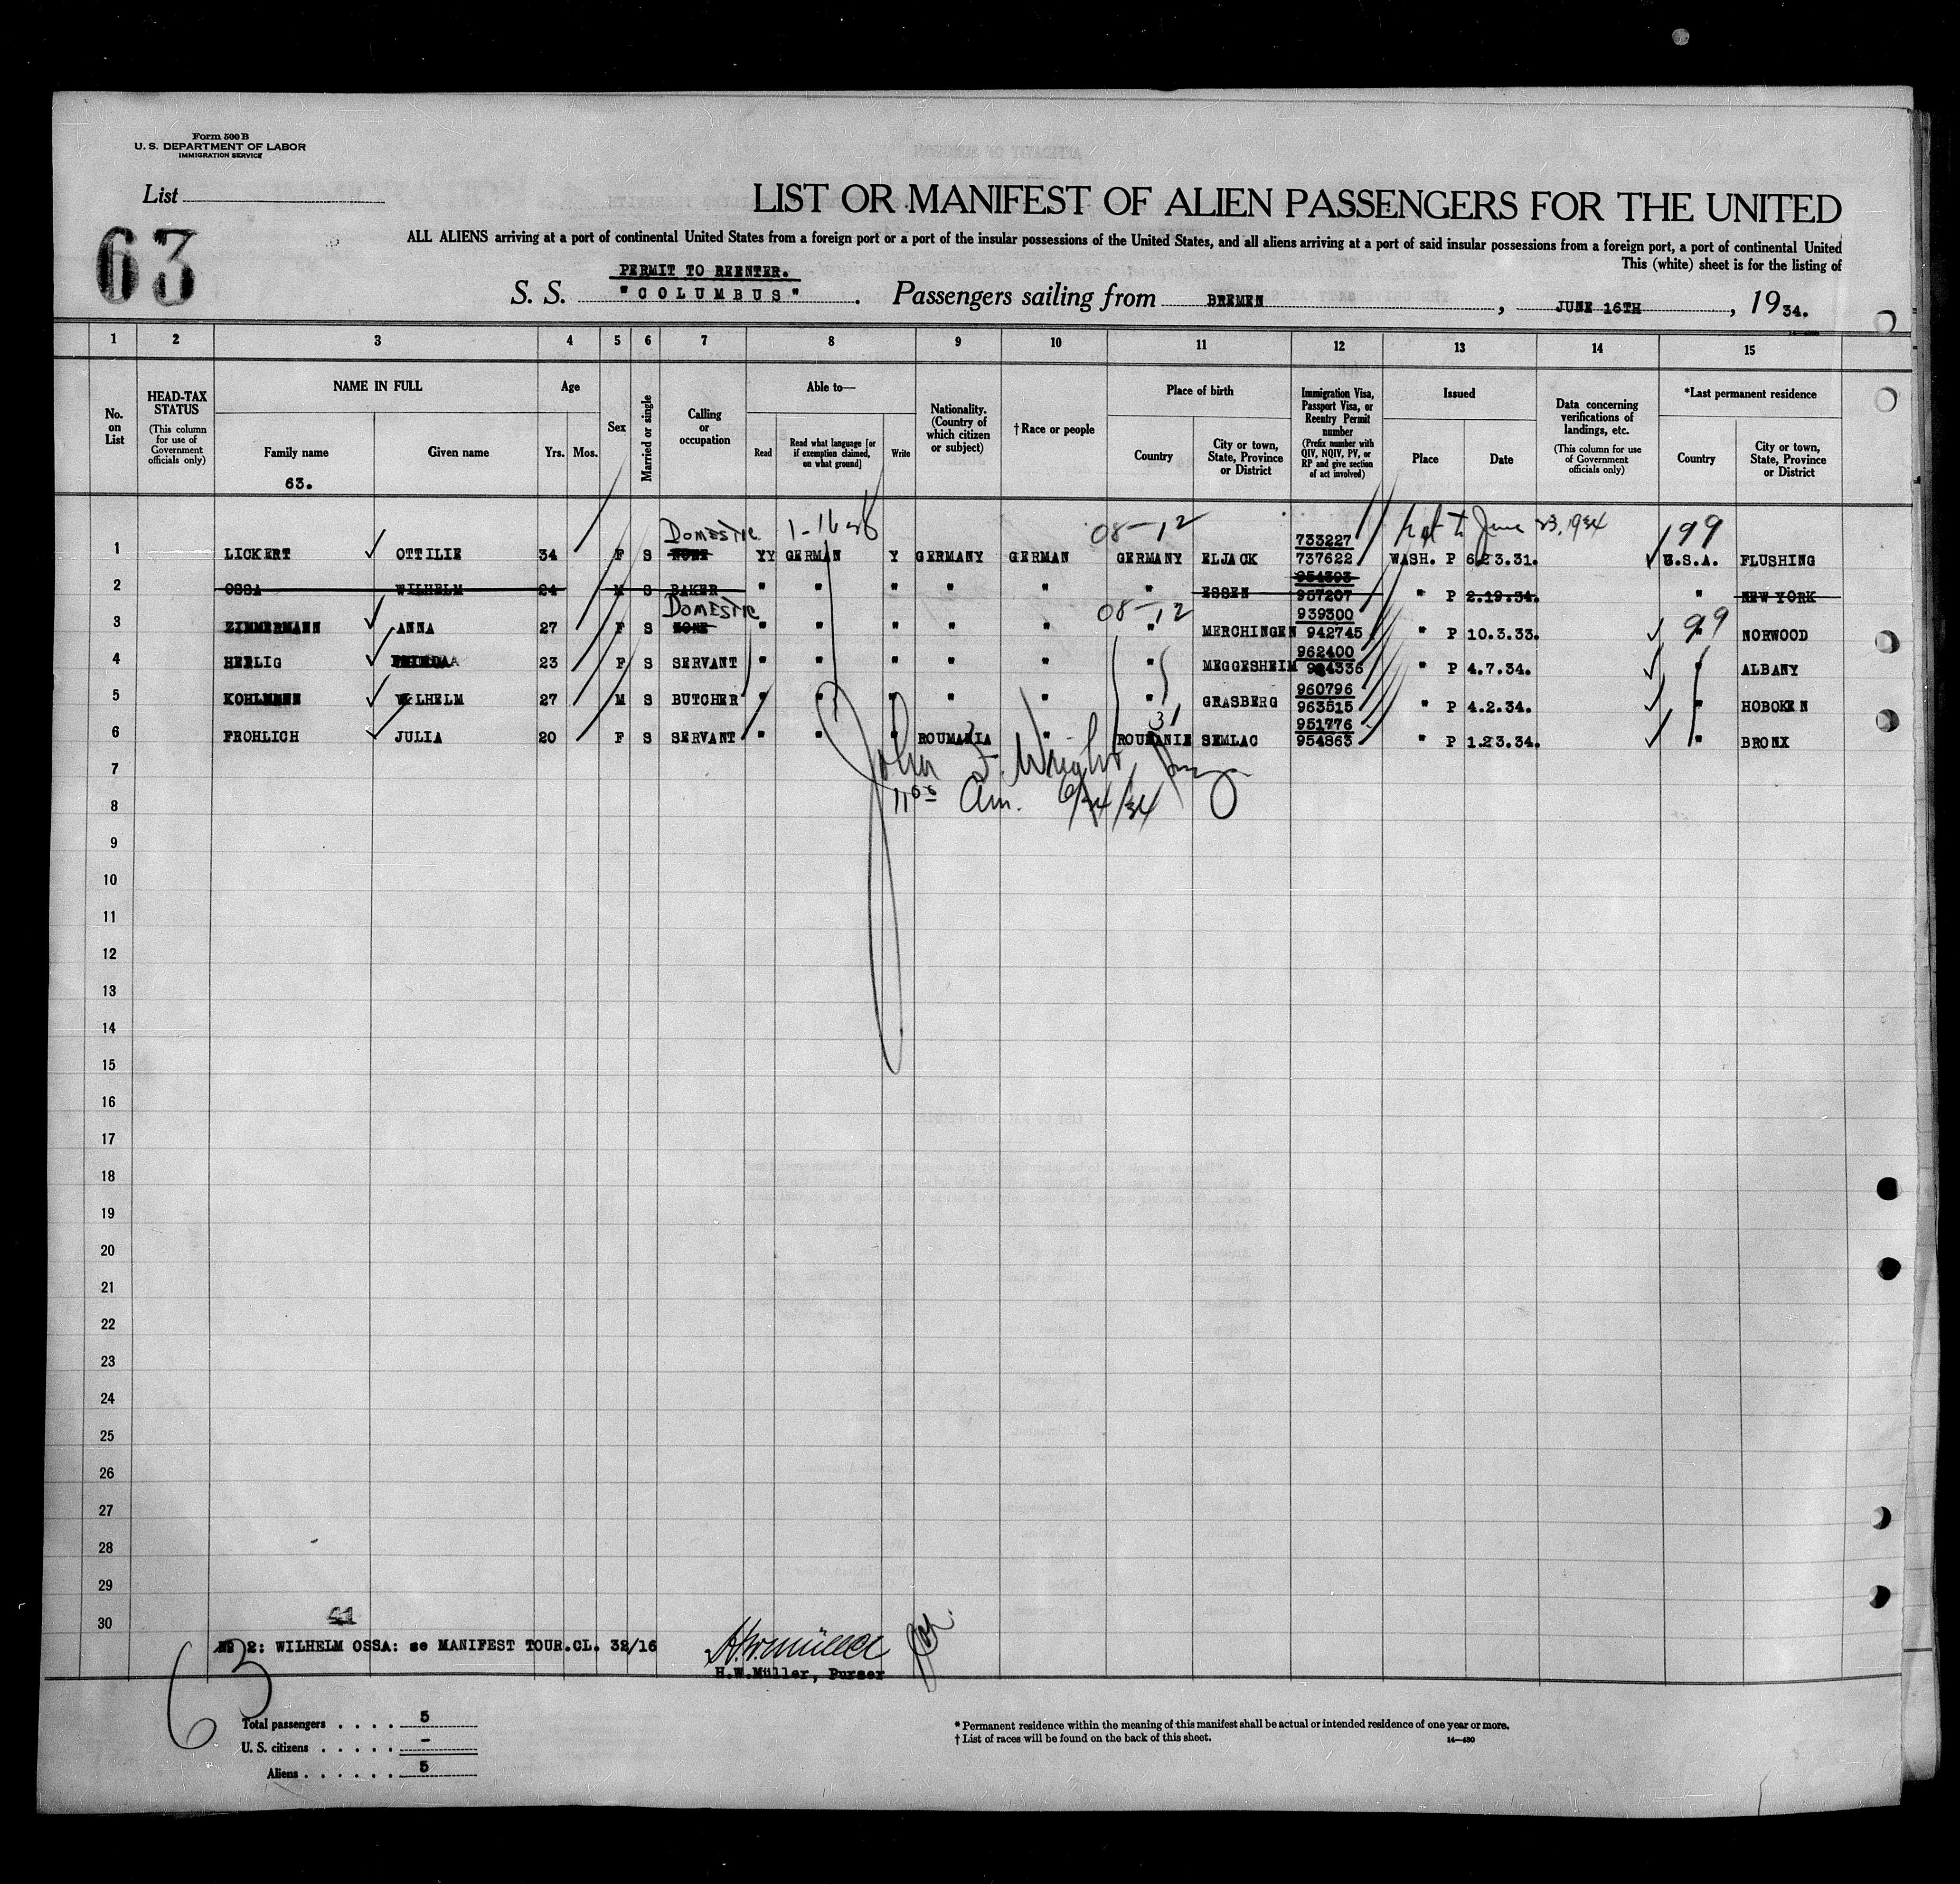 Form 500 B
U. S. DEPARTMENT OF LABOR
IMMIGRATION SERVICE
List
63
LIST OR MANIFEST OF ALIEN PASSENGERS FOR THE UNITED
ALL ALIENS arriving at a port of continental United States from a foreign port or a port of the insular possessions of the United States, and all aliens arriving at a port of said insular possessions from a foreign port, a port of continental United
This (white) sheet is for the listing of
PERMIT TO REENTER.
S. S. "COLUMBUS". Passengers sailing from BREMEN, JUNE 16TH, 1934.
1 2 3 4 5 6 7 8 9 10 11 12 13 14 15
No. on List
HEAD-TAX STATUS (This column for use of Government officials only)
NAME IN FULL
Family name
Given name
63.
Age
Yrs. Mos.
Sex
Married or single
Calling or occupation
Able to—
Read
Read what language [or if exemption claimed, on what ground]
Write
Nationality. (Country of which citizen or subject)
† Race or people
Place of birth
Country
City or town, State, Province or District
Immigration Visa, Passport Visa, or Reentry Permit number (Prefix number with QIV, NQIV, PV, or RP and give section of act involved)
Issued
Place
Date
Data concerning verifications of landings, etc. (This column for use of Government officials only)
*Last permanent residence
Country
City or town, State, Province or District
Domestic 08-12 733227 June 23, 1934 199
1 LICKERT OTTILIE 34 F S NONE YY GERMAN Y GERMANY GERMAN GERMANY ELJACK 737622 WASH. P 6.23.31. U.S.A. FLUSHING
954393
2 OSSA WILHELM 24 M S BAKER " " " " " " ESSEN 957207 " P 2.19.34. " NEW YORK
Domestic 08-12 939300 99
3 ZIMMERMANN ANNA 27 F S NONE " " " " " " MERCHINGEN 942745 " P 10.3.33. " NORWOOD
962400
4 HERLIG 23 F S SERVANT " " " " " " MEGGESHEIM " P 4.7.34. " ALBANY
960796
5 WILHELM 27 M S BUTCHER " " " " " " GRASBERG 963515 " P 4.2.34. " HOBOKEN
951776
6 FROHLICH JULIA 20 F S SERVANT " " " ROUMANIA " ROUMANIE SEMLAC 954863 " P 1.23.34. " BRONX
John F. Wright
11 00 Am. 6/24/34
7
8
9
10
11
12
13
14
15
16
17
18
19
20
21
22
23
24
25
26
27
28
29
30
No 2: WILHELM OSSA: se MANIFEST TOUR.CL. 32/16
H.W.Müller
H.W.Müller, Purser
63
Total passengers .... 5
U. S. citizens ..... -
Aliens ...... 5
* Permanent residence within the meaning of this manifest shall be actual or intended residence of one year or more.
† List of races will be found on the back of this sheet.
14—430